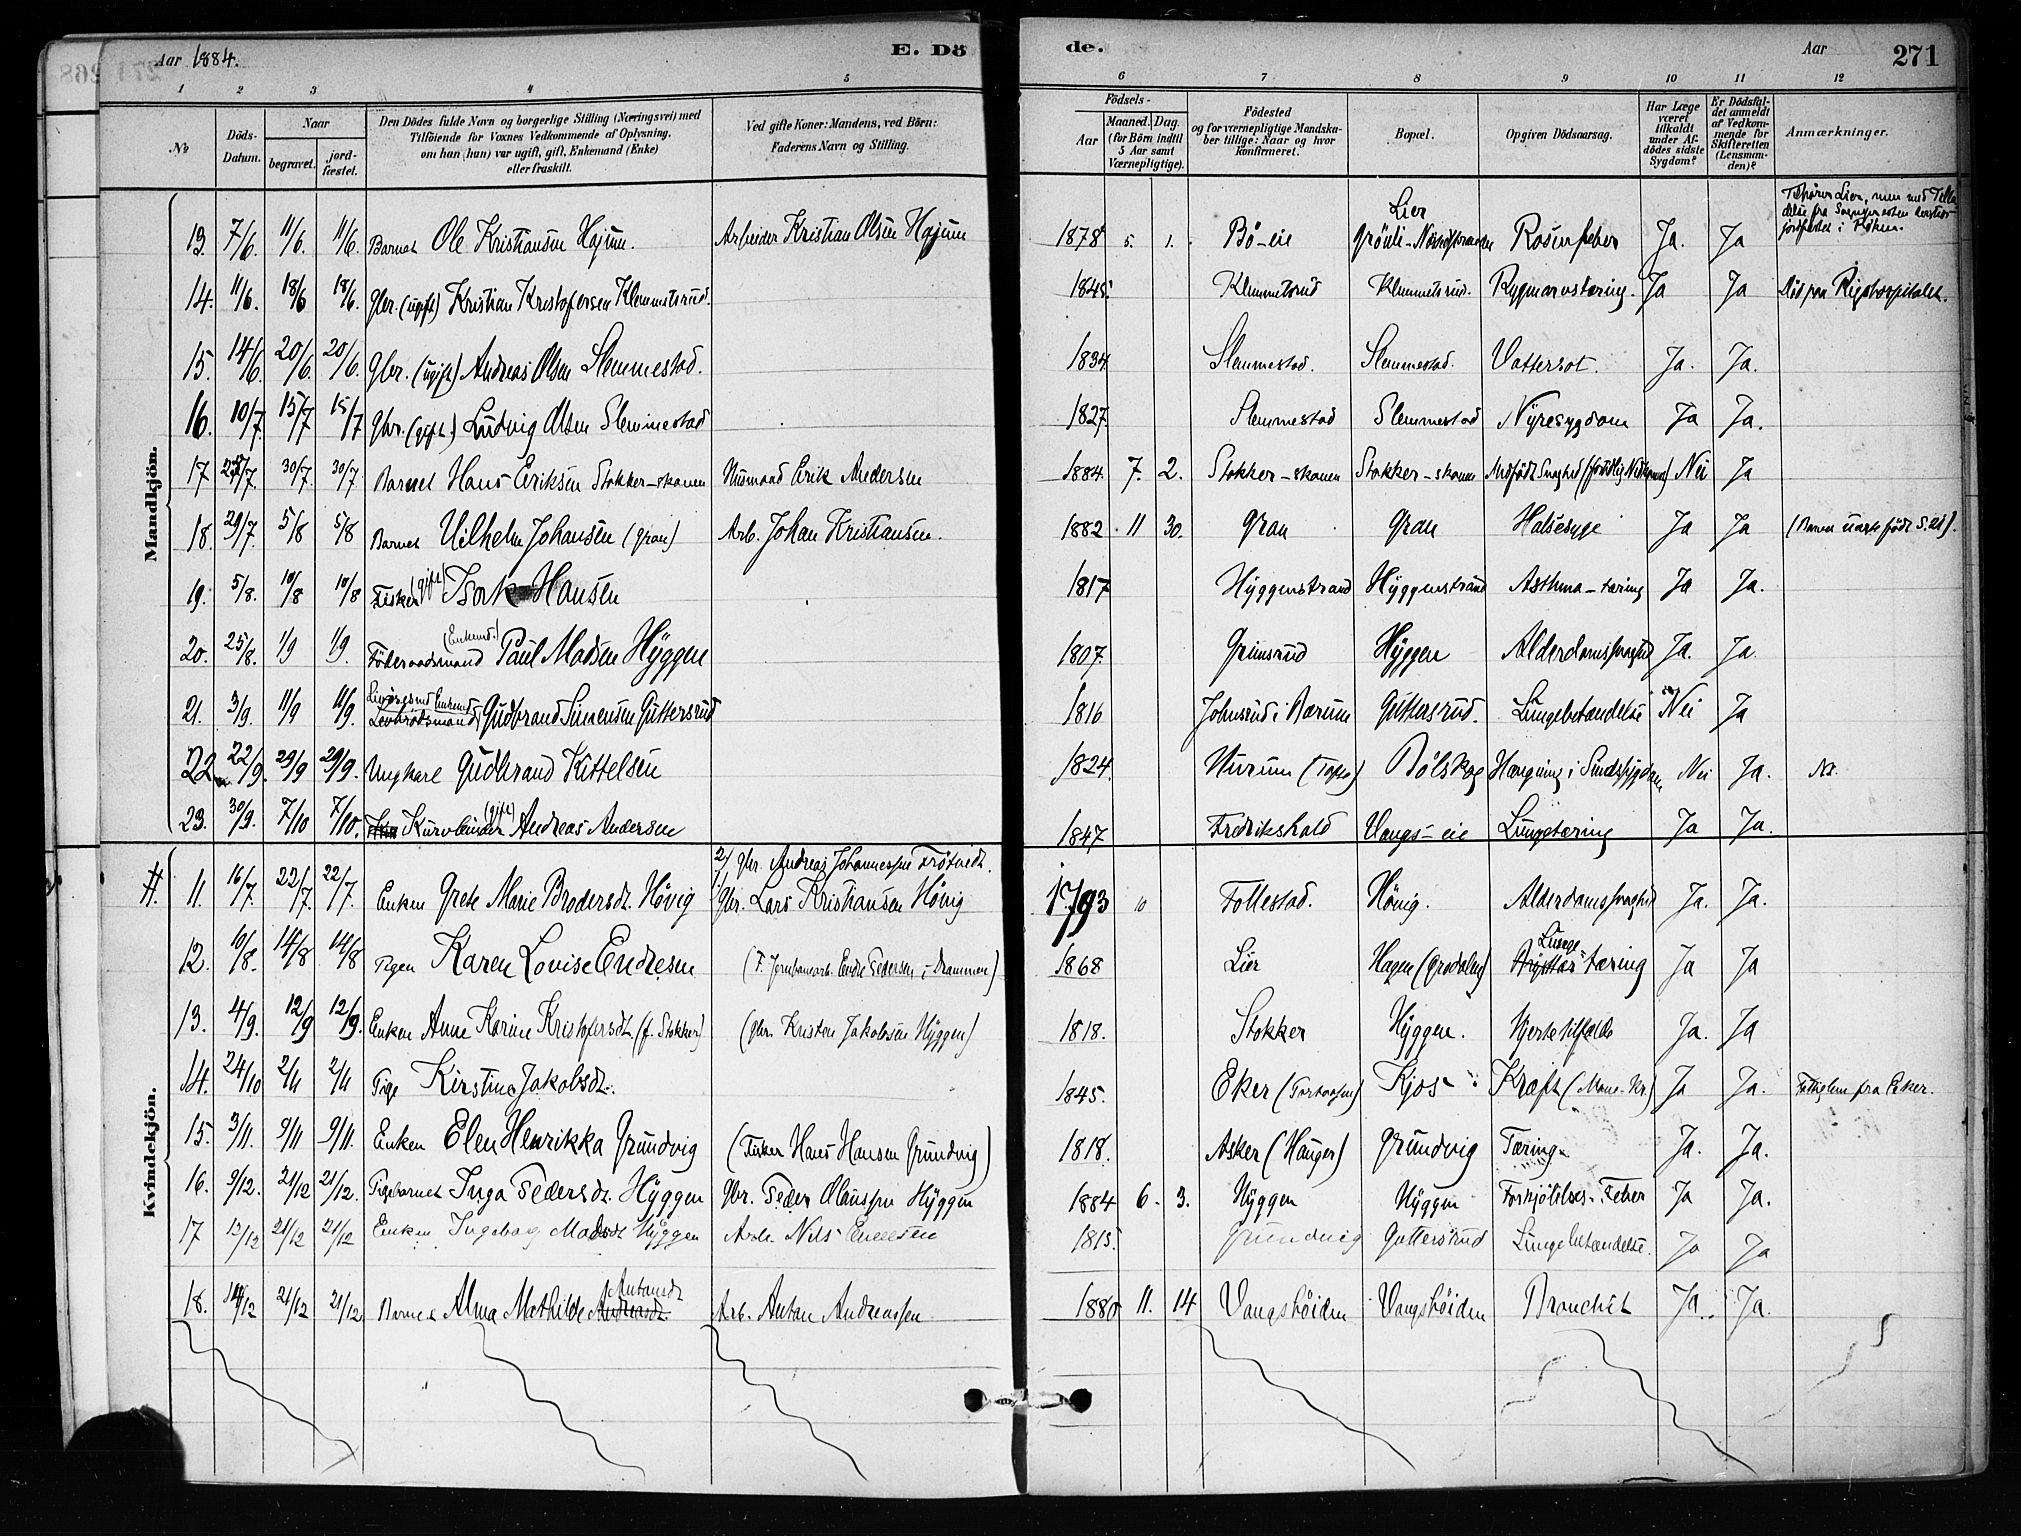 Aar 1884.
E. Dö de.
Aar
271
1 2 3 4 5 6 7 8 9 10 11 12
No
Döds-Datum.
Naar
begravet.
jord-fæstet.
Den Dödes fulde Navn og borgerlige Stilling (Næringsvei) med
Tilföiende for Voxnes Vedkommende af Oplysning,
om han (hun) var ugift, gift, Enkemand (Enke)
eller fraskilt.
Ved gifte Koner: Mandens, ved Börn:
Faderens Navn og Stilling.
Födsels-
Aar
Maaned. Dag.
(for Börn indtil
5 Aar samt
Værnepligtige).
Födested
og for værnepligtige Mandska-
ber tillige: Naar og hvor
konfirmeret.
Bopæl.
Opgiven Dödsaarsag.
Har Læge
været
tilkaldt
under Af-
dödes sidste
Sygdom?
Er Dödsfal-
det anmeldt
af Vedkom-
mende for
Skifteretten
(Lensman-
den)?
Anmærkninger.
Mandkjön.
13. 7/6. 11/6. 11/6. Barnet Ole Kristiansen Hajum. Arbeider Kristian Olsen Hajum 1878 5. 1. Bö-eie Lier Rosenfeber Ja. Ja
14. 11/6. 18/6 18/6. Gbr. (ugift) Kristian Kristofersen Klemmetsrud. 1845. Klemmetsrud Klemmetsrud. Rygmarvstæring. Ja Ja Död paa Rigshospitalet.
15. 14/6. 20/6. 20/6. Gbr. (ugift) Andreas Olsen Slemmestad. 1834. Slemmestad. Slemmestad. Vattersot. Ja. Ja.
16. 10/7. 15/7 15/7 Gbr. (gift.) Ludvig Olsen Slemmestad 1827. Slemmestad Slemmestad Nyresygdom Ja Ja.
17 30/7. 30/7 Barnet Hans Eriksen Stokker-skauen Husmand Erik Andersen 1884. 7. 2. Stokker-skauen Stokker-skauen Medfödt Svaghed Nei Ja
18. 29/7. 5/8 5/8 Barnet Vilhelm Johansen (Gran) Arb. Johan Kristiansen. 1882 11 30. Gran Gran Halsesyge Ja Ja
19. 5/8. 10/8 10/8 Fisker (gift) Isak Hansen 1817 Hyggenstrand Hyggenstrand Asthma-tæring Ja Ja.
20. 25/8. 1/9 1/9. Föderaadsmand (Enkemd.) Paul Madsen Hyggen 1807. Grimsrud Hyggen Alderdomssvaghed Ja. Ja.
21. 3/9. 11/9 11/9. Gudbrand Simensen Guttersrud 1816 Johnsrud i Bærum Guttersrud. Lungebetændelse Nei Ja
22. 22/9. 29/9 29/9. Ungkarl Gudbrand Kittelsen 1824. Hurum (Tofte) Bölskog Hængning i Sindssygdom Nei Ja.
23. 30/9. 7/10 7/10. Kurvbinder (gift) Andreas Andersen 1847 Fredrikshald Vangs-eie Lungetæring Ja Ja.
Kvindekjön.
11. 16/7. 22/7. 22/7. Enken Grete Marie Brodersdt. Hövig
2) Gbr. Andreas Johannessen
1) Gbr. Lars Kristiansen Hövig 1793 10 Follestad. Hövig. Alderdomssvaghed Ja. Ja.
12. 10/8. 14/8 14/8 Pigen Karen Lovise Endresen (F. Jernbanearb. Endre Pedersen i Drammen) 1868 Lier Hagen (Grodalen) Lunge-tæring Ja Ja
13. 4/9. 12/9 12/9. Enken Anne Karine Kristofersdt. (f. Stokker) (Gbr. Kristen Jakobsen Hyggen) 1818. Stokker Hyggen. Hjertetilfælde Ja. Ja
14. 24/10 2/11 2/11 Pige Kirstine Jakobsdt. 1845. Eker Kjos Kræft Ja Ja. Fattiglem fra Eker.
15. 3/11. 9/11 9/11. Enken Elen Henrikka Grundvig (Fisker Hans Hansen Grundvig) 1818. Asker (Hauger) Grundvig Tæring. Ja. Ja.
16. 9/12. 21/12 21/12. Pigebarnet Inga Pedersdt. Hyggen Gbr. Peder Olaussen Hyggen 1884 6. 3. Hyggen Hyggen Forkjölelses-Feber Ja Ja.
17 13/12 21/12 21/12 Enken Ingeborg Madsdt Hyggen Arb. Nils 1815. Grundvig Guttersrud Lungebetændelse. Ja Ja
18. 14/12 21/12 21/12 Barnet Alma Mathilde Antonsdt Arb. Anton Andreassen 1880 11. 14 Vangshöiden Vangshöiden Bronchit Ja. Ja.